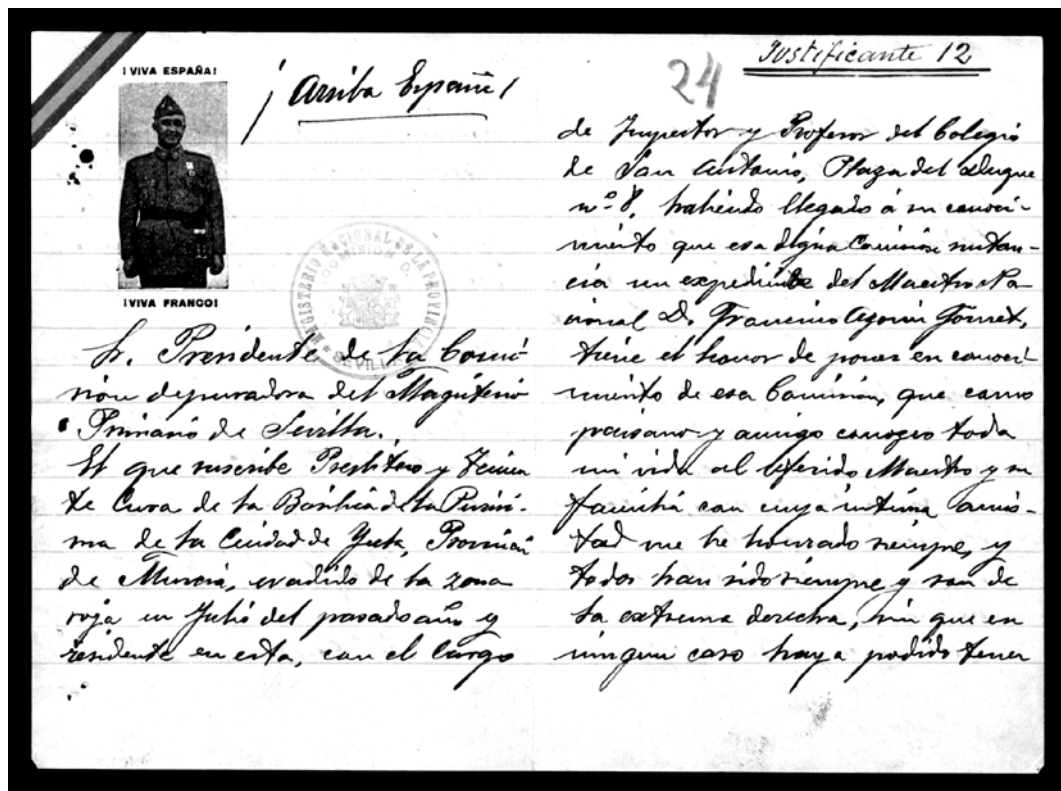 ¡VIVA ESPAÑA!
¡VIVA FRANCO!
¡Arriba España!
Sr. Presidente de la Comi-
sión depuradora del Magisterio
Primario de Sevilla.
El que suscribe Presbítero y Tenien
te Cura de la Basílica de la Purísi-
ma de la Ciudad de Yecla, Provincia
de Murcia, evadido de la zona
roja en Julio del pasado año y
residente en esta, con el cargo
24
Justificante 12
de Inspector y Profesor del Colegio
de San Antonio, Plaza del Duque
nº 8, habiendo llegado á su conoci-
miento que esa digna Comisión sustan-
cia un expediente del Maestro Na
cional D. Francisco Azorín
tiene el honor de poner en conoci-
miento de esa Comisión, que como
paisano y amigo conozco toda
mi vida al referido Maestro y su
familia con cuya intima amis-
tad me he honrado siempre, y
todos han sido siempre y son de
la extrema derecha, sin que en
ningun caso haya podido tener
MAGISTERIO NACIONAL DE LA PROVINCIA
COMISION D.
SEVILLA